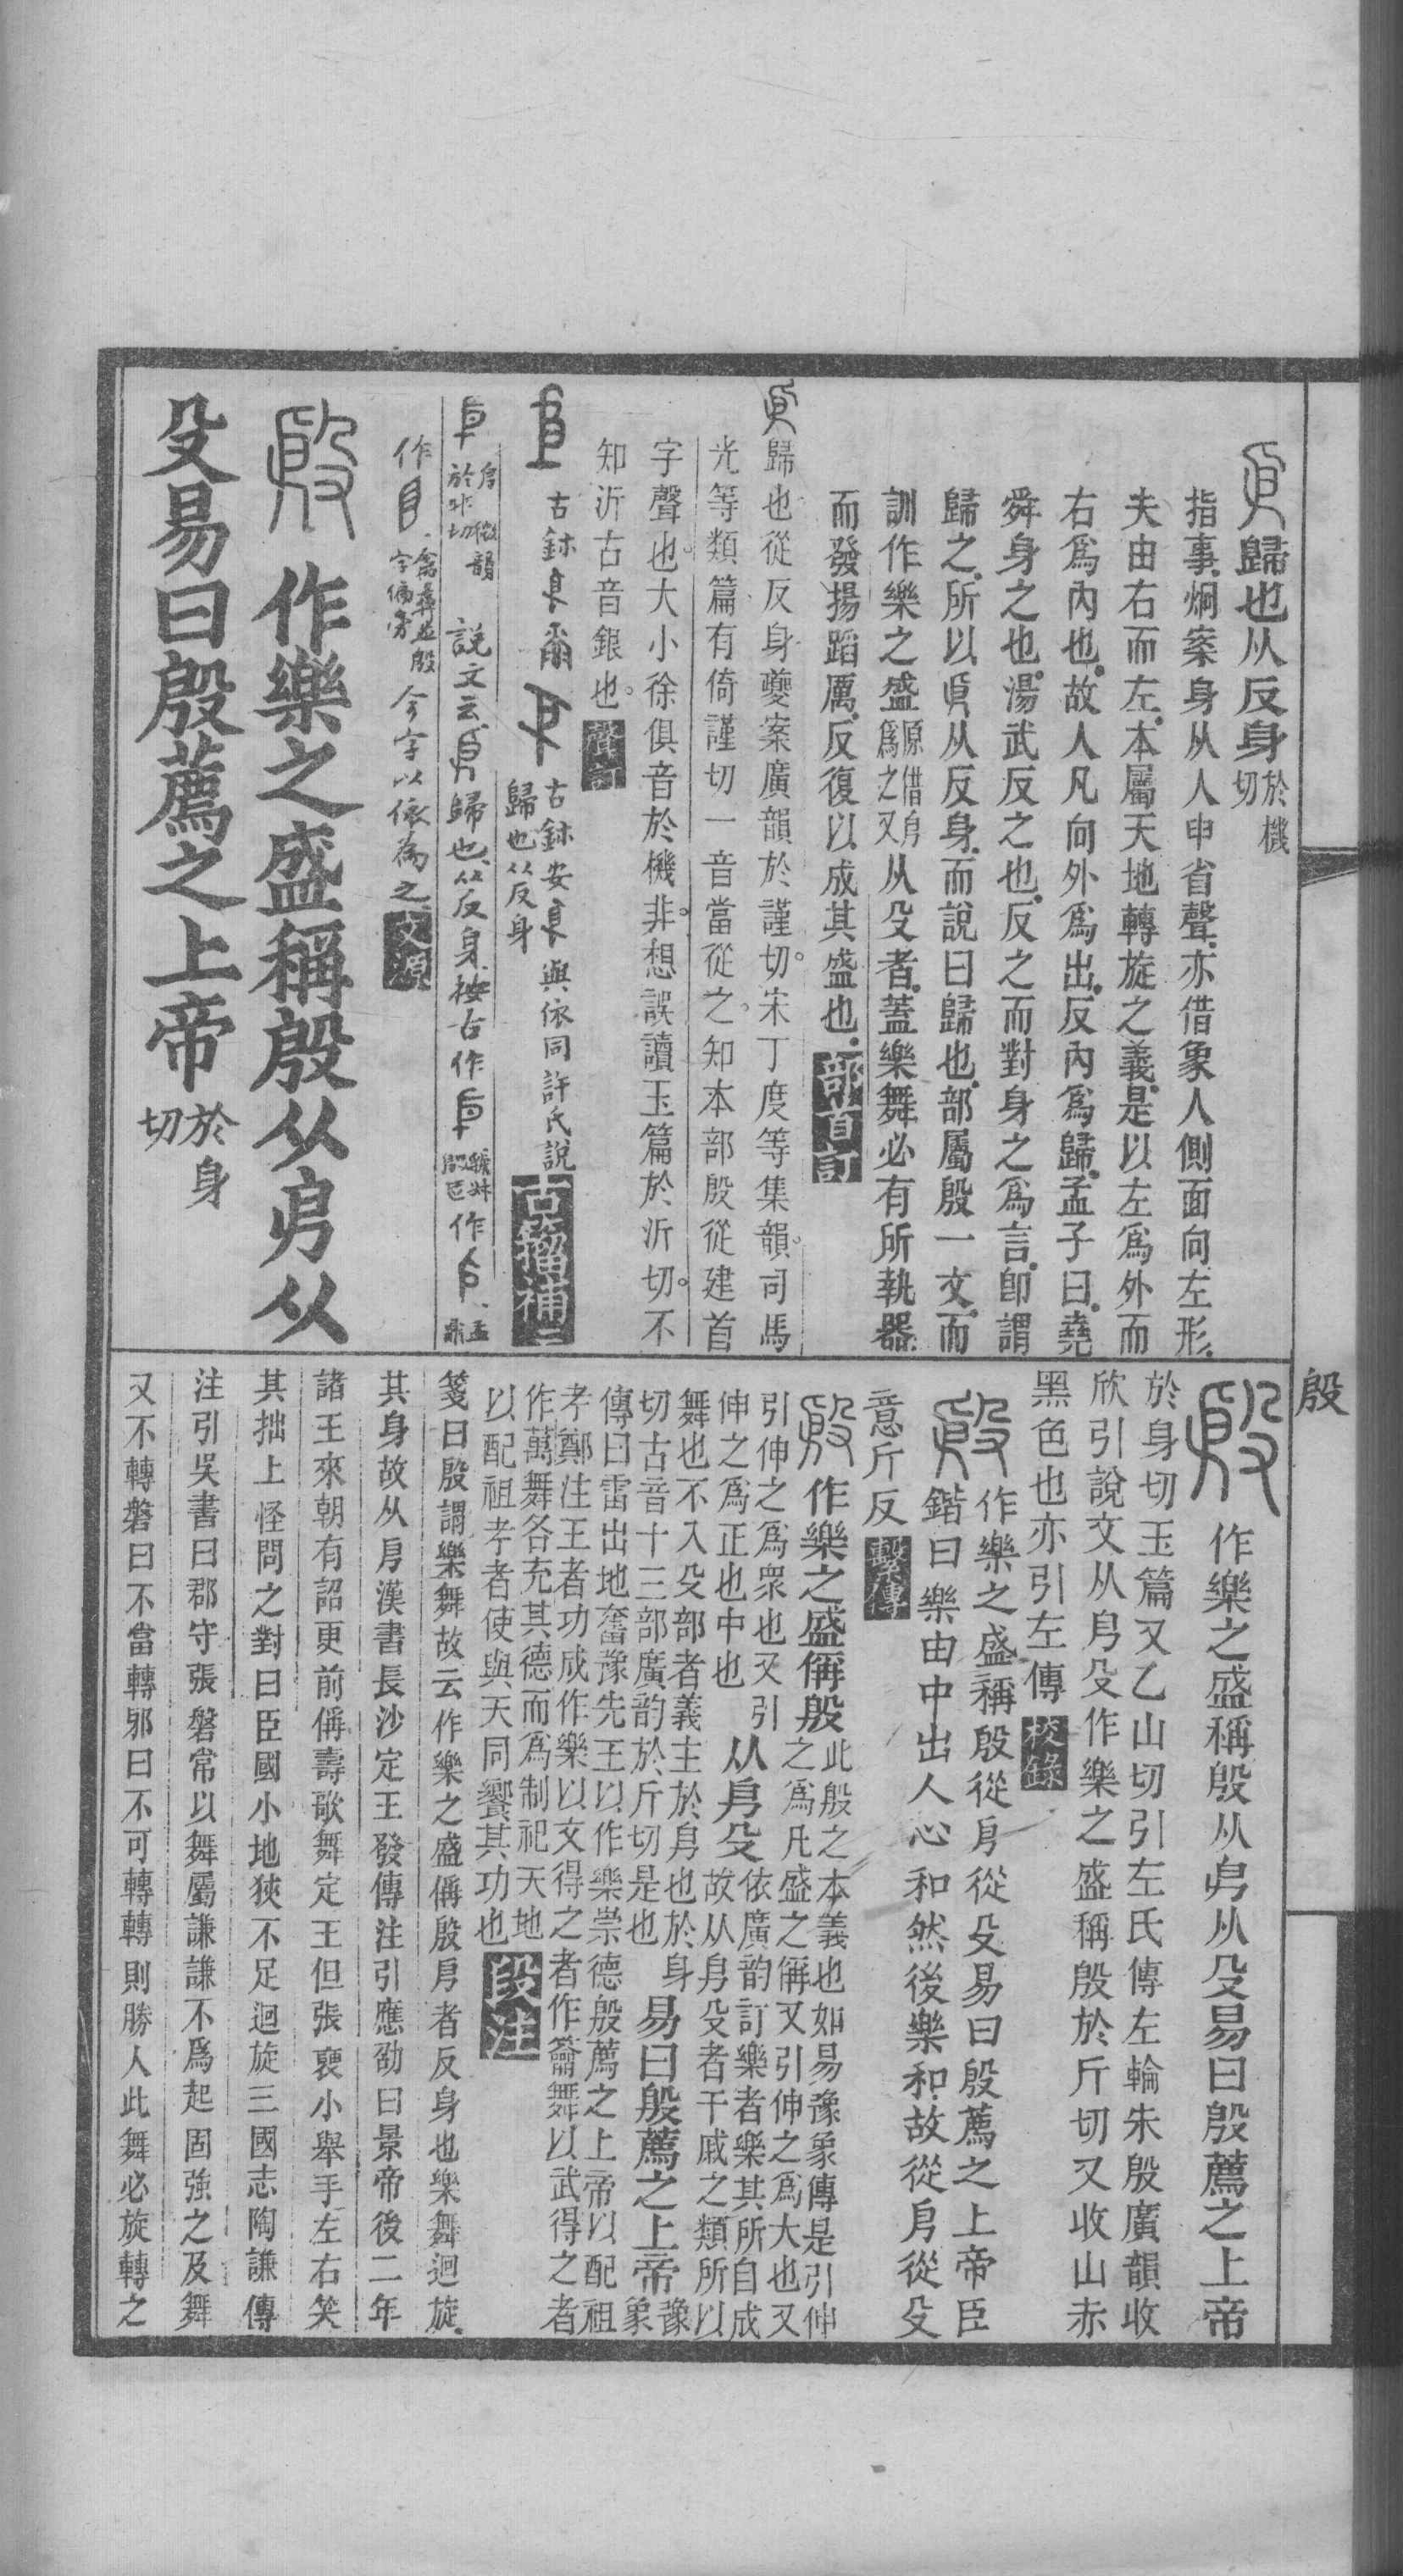 㐆歸也从反身於機切
指事炯案身从人申省聲亦借象人側面向左形
夫由右而左本屬天地轉旋之義是以左爲外而
右爲內也故人凡向外爲出反內爲歸孟子曰堯
舜身之也湯武反之也反之而對身之爲言卽謂
歸之所以㐆从反身而說曰歸也部屬殷一文而
訓作樂之盛原借㐆爲之又从殳者蓋樂舞必有所執器
而發揚蹈厲反復以成其盛也部首訂
㐆歸也從反身夔案廣韻於謹切宋丁度等集韻司馬
光等類篇有倚謹切一音當從之知本部殷從建首
字聲也大小徐俱音於機非想誤讀玉篇於沂切不
知沂古音銀也聲訂
古鉥㐆爾
古鉥安㐆與依同許氏說
歸也从反身
古籀補
㐆微韻於非切
說文云㐆歸也从反身按古作
作
孟鼎
作
字偏旁
今字以依爲之文源
殷作樂之盛稱殷从㐆从
殳易曰殷薦之上帝於身切
殷
殷作樂之盛稱殷从㐆从殳易曰殷薦之上帝
於身切玉篇又乙山切引左氏傳左輪朱殷廣韻收
欣引說文从㐆殳作樂之盛稱殷於斤切又收山赤
黑色也亦引左傳校錄
殷作樂之盛稱殷從㐆從殳易曰殷薦之上帝臣
鍇曰樂由中出人心和然後樂和故從㐆從殳
意斤反繫傳
殷作樂之盛偁殷此殷之本義也如易豫象傳是引伸之爲凡盛之偁又引伸之爲大也又
引伸之爲衆也又引伸之爲正也中也从㐆殳依廣韵訂樂者樂其所自成故从㐆殳者干戚之類所以
舞也不入殳部者義主於㐆也於身切古音十三部廣韵於斤切是也易曰殷薦之上帝豫象
傳曰雷出地奮豫先王以作樂崇德殷薦之上帝以配祖
孝鄭注王者功成作樂以文得之者作籥舞以武得之者
作萬舞各充其德而爲制祀天地
以配祖孝者使與天同饗其功也段注
箋曰殷謂樂舞故云作樂之盛偁殷㐆者反身也樂舞迴旋
其身故从㐆漢書長沙定王發傳注引應劭曰景帝後二年
諸王來朝有詔更前偁壽歌舞定王但張褏小舉手左右笑
其拙上怪問之對曰臣國小地狹不足迴旋三國志陶謙傳
注引吳書曰郡守張磐常以舞屬謙謙不爲起固強之及舞
又不轉磐曰不當轉邪曰不可轉轉則勝人此舞必旋轉之